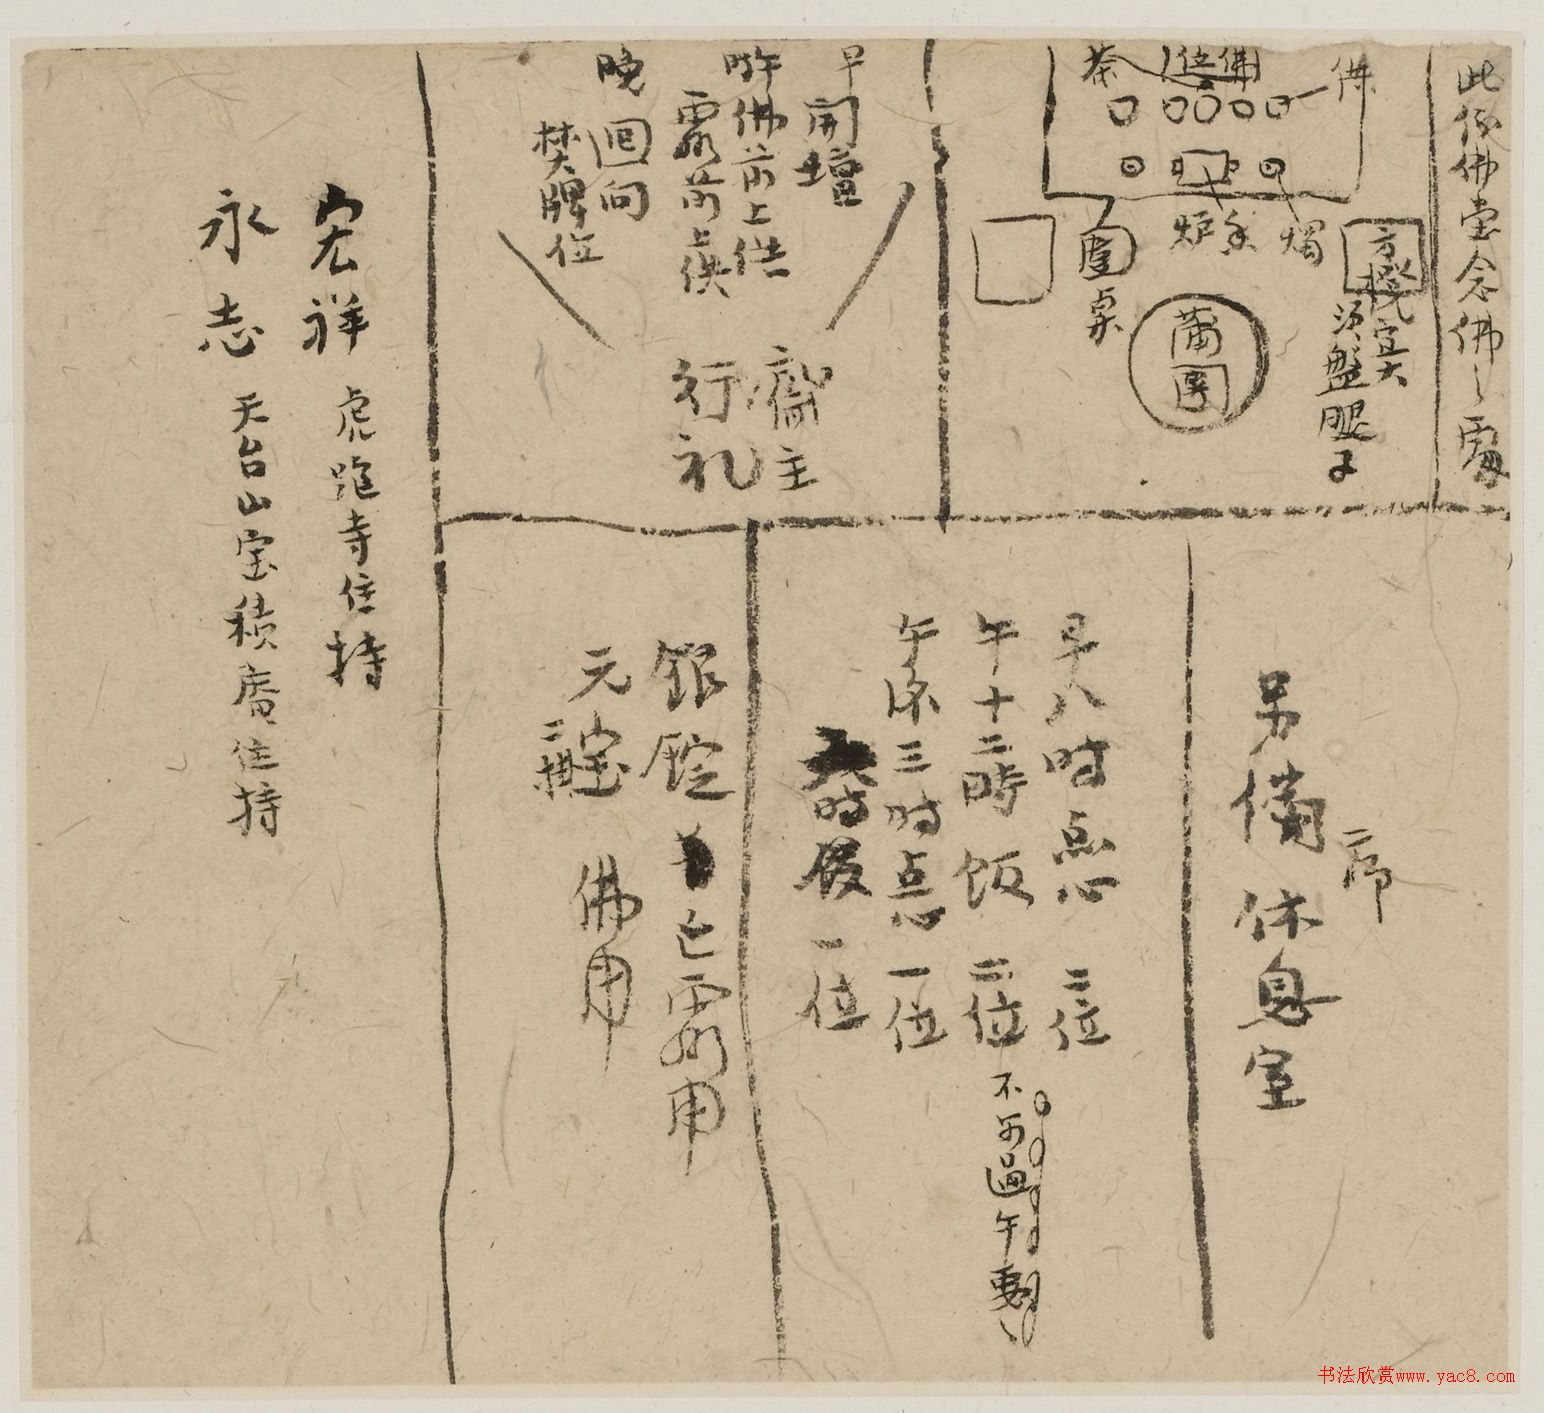 此係佛堂念佛之處
佛
佛位
茶
燭
香炉
圍桌
方櫈宜大
須盤腿子
蒲團
早開壇
晔佛前上供
靈前上供
晚回向
焚牌位
齋主
行礼
另備休息室
二席
早八时点心 二位
午十二時飯 二位 不可過午刻
午后三时点心 一位
时飯 一位
銀錠 亡靈用
元宝 佛用
二捆
宏祥 虎跑寺住持
永志 天台山宝積庵住持
书法欣赏www.yac8.com